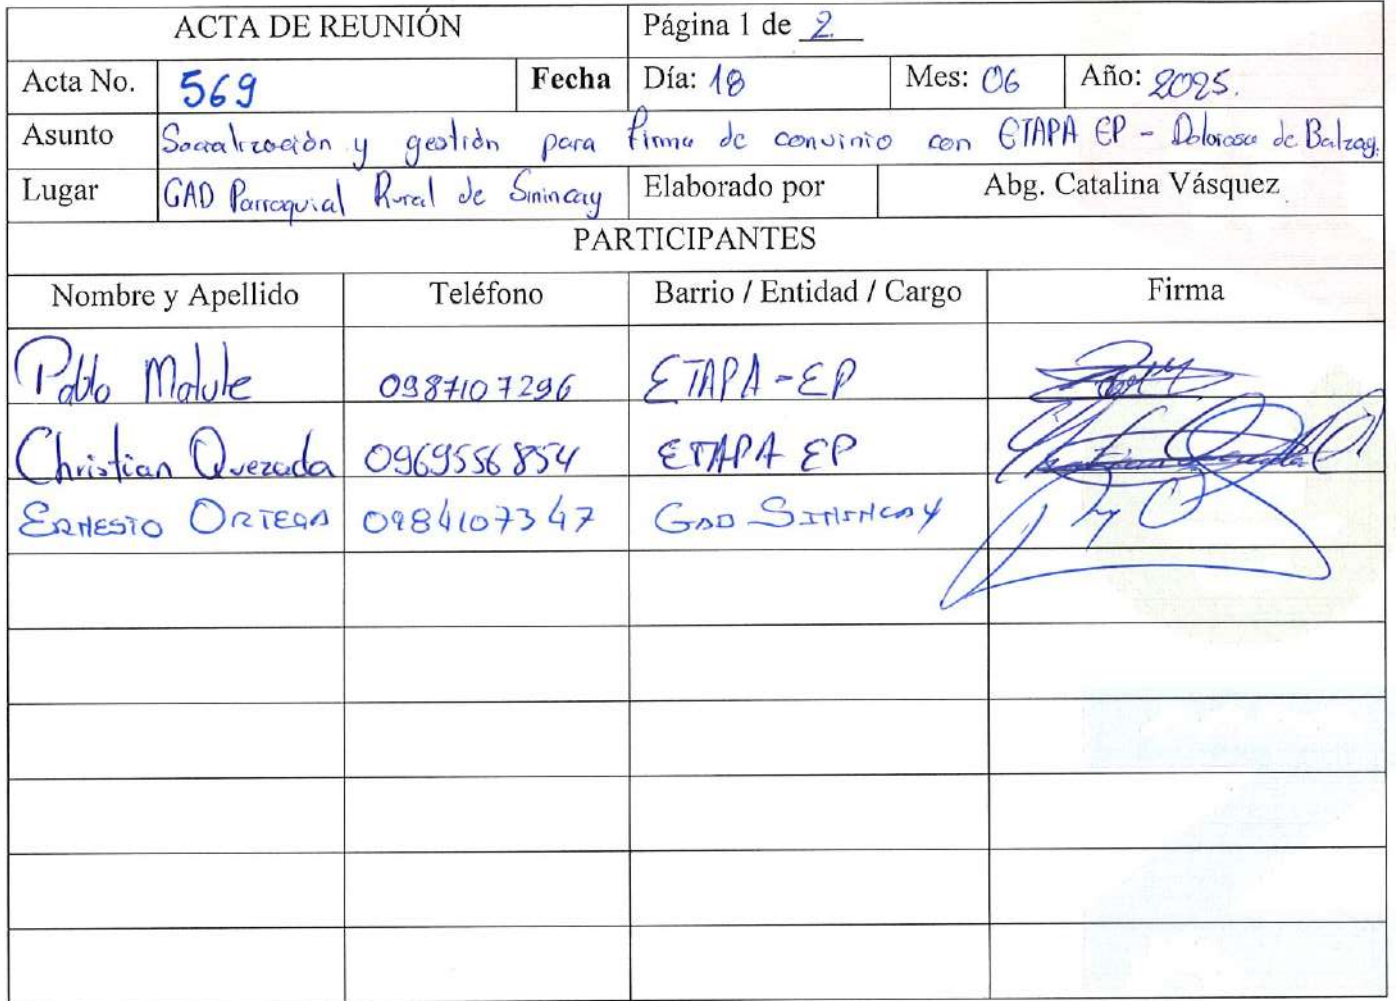 ACTA DE REUNIÓN Página 1 de 2
Acta No. 569 Fecha Día: 18 Mes: 06 Año: 2025.
Asunto Socialización y gestión para firma de convinio con ETAPA EP - Dolorosa de Balzay.
Lugar GAD Parroquial Rural de Sinincay Elaborado por Abg. Catalina Vásquez
PARTICIPANTES
Nombre y Apellido Teléfono Barrio / Entidad / Cargo Firma
Pablo Malule 0987107296 ETAPA-EP
Christian Quezada 0969556854 ETAPA EP
ERNESTO ORTEGA 0984107347 GAD SININCAY